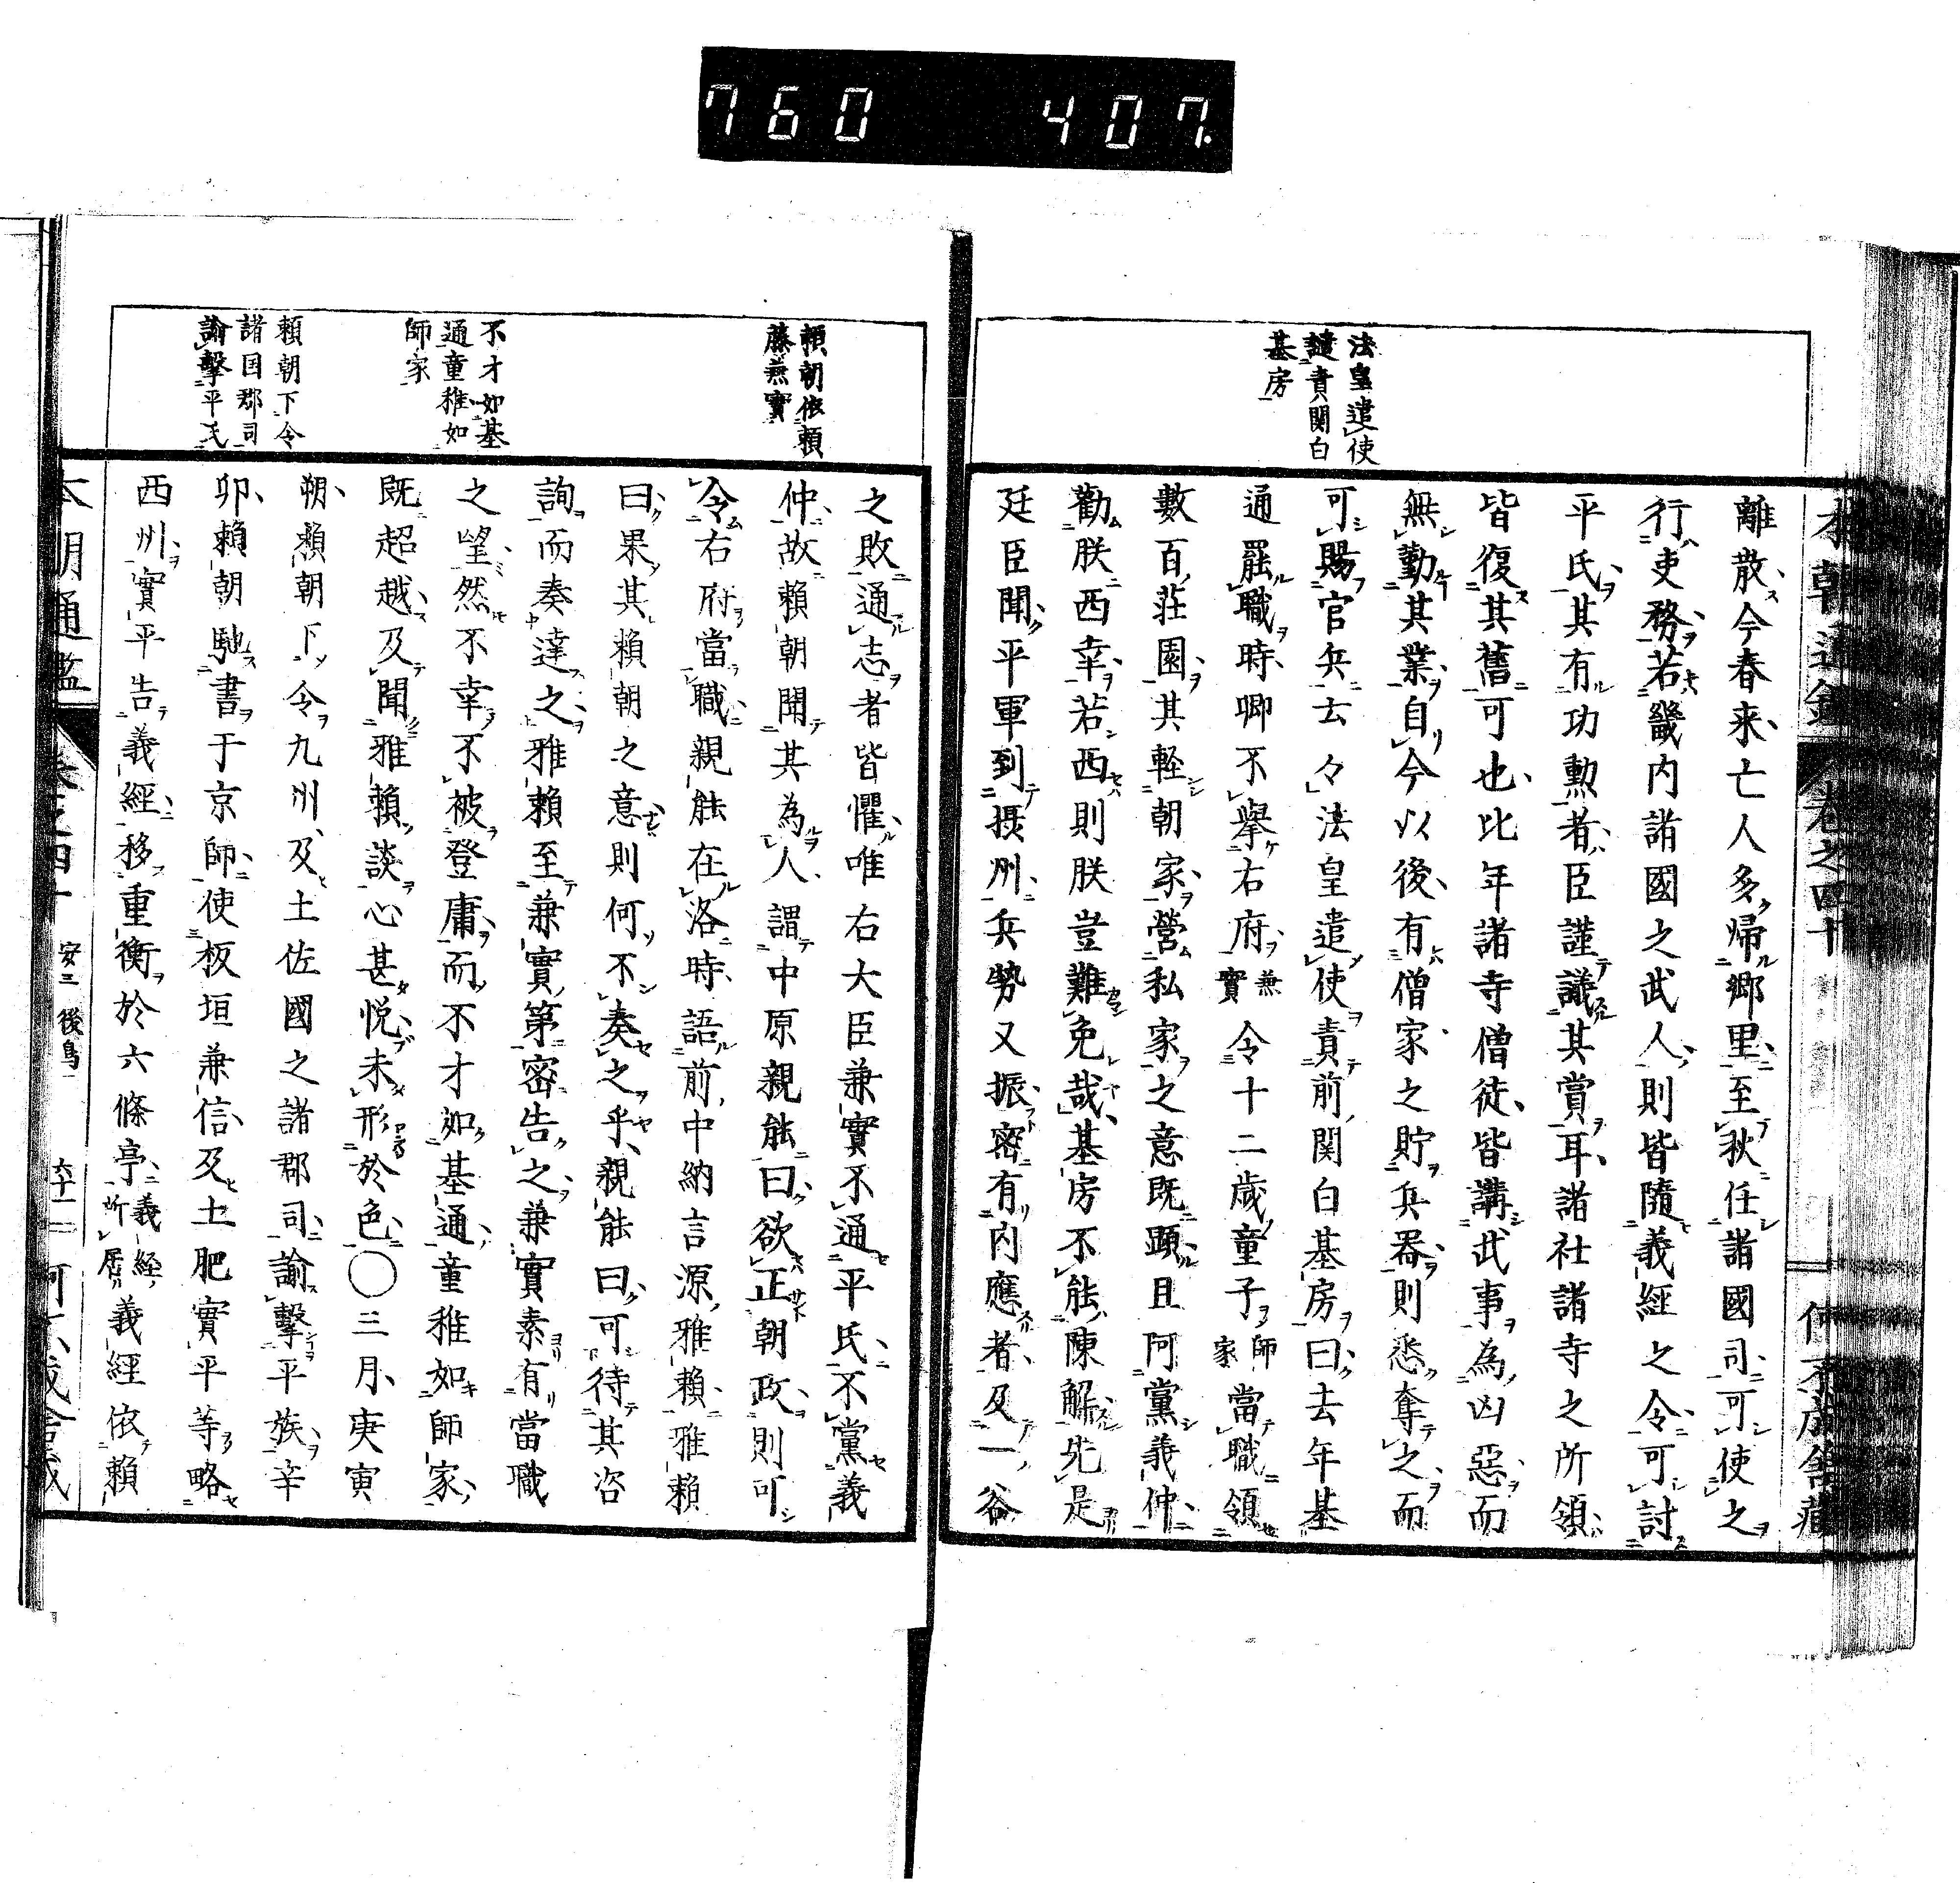 760 407.
本朝通鑑 卷之四十
法皇遣使
譴責関白
基房
離散今春来亡人多帰郷里至秋任諸國司可使之
行吏務若畿内諸國之武人則皆隨義經之令可討
平氏其有功勲者臣謹議其賞耳諸社諸寺之所領
皆復其舊可也比年諸寺僧徒皆講武事為凶惡而
無勤其業自今以後有僧家之貯兵器則悉奪之而
可賜官兵云々法皇遣使責前関白基房曰去年基
通罷職時卿不擧右府兼實令十二歳童子師家當職領
數百荘園其軽朝家營私家之意既顕且阿黨義仲
勸朕西幸若西則朕豈難免哉基房不能陳解先是
廷臣聞平軍到摂州兵勢又振密有内應者及一谷
頼朝依頼
藤兼實
不才如基
通童稚如
師家
頼朝下令
諸国郡司
諭撃平氏
之敗通志者皆懼唯右大臣兼實不通平氏不黨義
仲故頼朝聞其為人謂中原親能曰欲正朝政則可
令右府當職親能在洛時語前中納言源雅頼雅頼
曰果其頼朝之意則何不奏之乎親能曰可待其咨
詢而奏達之雅頼至兼實第密告之兼實素有當職
之望然不幸不被登庸而不才如基通童稚如師家
既超越及聞雅頼談心甚悦未形於色〇三月庚寅
朔頼朝下令九州及土佐國之諸郡司諭撃平族辛
卯頼朝馳書于京師使板垣兼信及土肥實平等略
西州實平告義經移重衡於六條亭義經所居義經依頼
本朝通鑑 卷之四十 安三 後鳥一